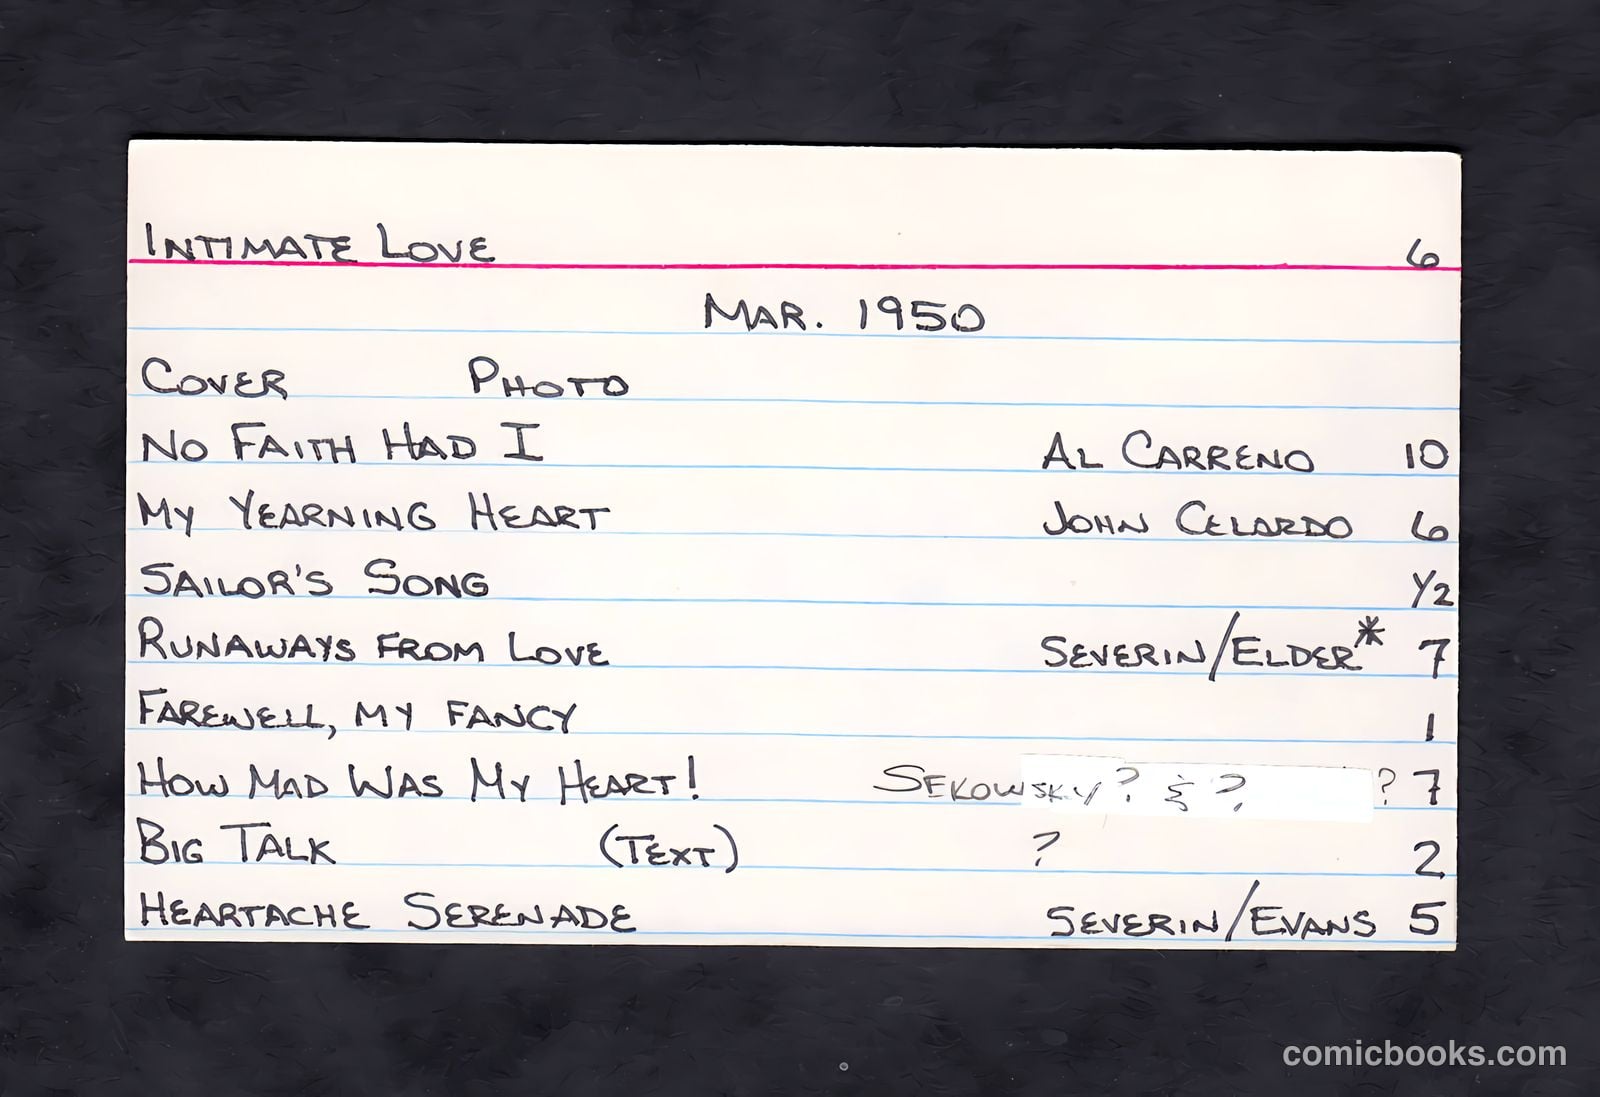 INTIMATE LOVE 6
MAR. 1950
COVER PHOTO
NO FAITH HAD I AL CARRENO 10
MY YEARNING HEART JOHN CELARDO 6
SAILOR'S SONG 1/2
RUNAWAYS FROM LOVE SEVERIN/ELDER* 7
FAREWELL, MY FANCY 1
HOW MAD WAS MY HEART! SEKOWSKY? & ? ? 7
BIG TALK (TEXT) ? 2
HEARTACHE SERENADE SEVERIN/EVANS 5
comicbooks.com